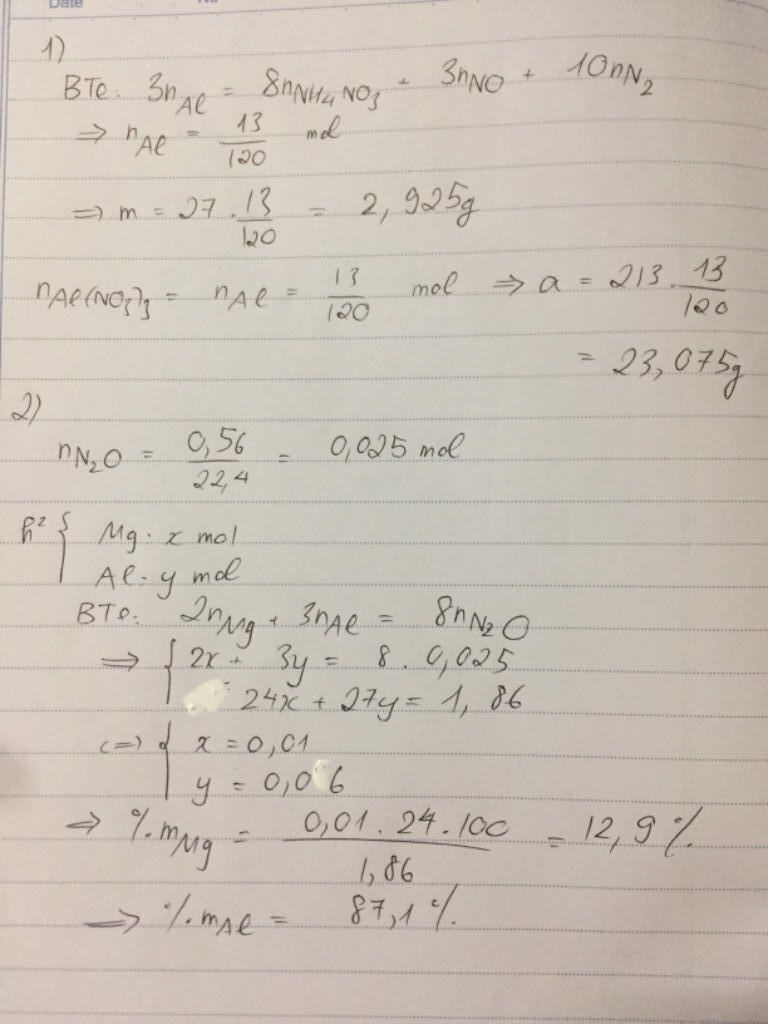 Date No
1)
BTe: 3nAl = 8nNH4NO3 + 3nNO + 10nN2
=> nAl = 13/120 mol
=> m = 27 . 13/120 = 2,925g
nAl(NO3)3 = nAl = 13/120 mol => a = 213 . 13/120
= 23,075g
2)
nN2O = 0,56/22,4 = 0,025 mol
h² { Mg: x mol
Al: y mol
BTe: 2nMg + 3nAl = 8nN2O
=> { 2x + 3y = 8 . 0,025
24x + 27y = 1,86
<=> { x = 0,01
y = 0,06
=> %mMg = 0,01 . 24 . 100/1,86 = 12,9%
=> %mAl = 87,1%